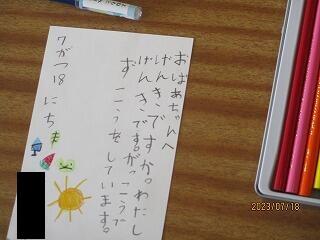 おばあちゃんへ
げんきですか。わたし
げんきです。がっこうで
ずこうをしています。
7がつ18にち
2023/07/18